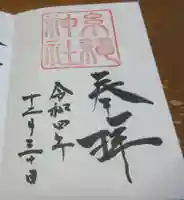 奉拝
神社
令和四年
十二月三十日